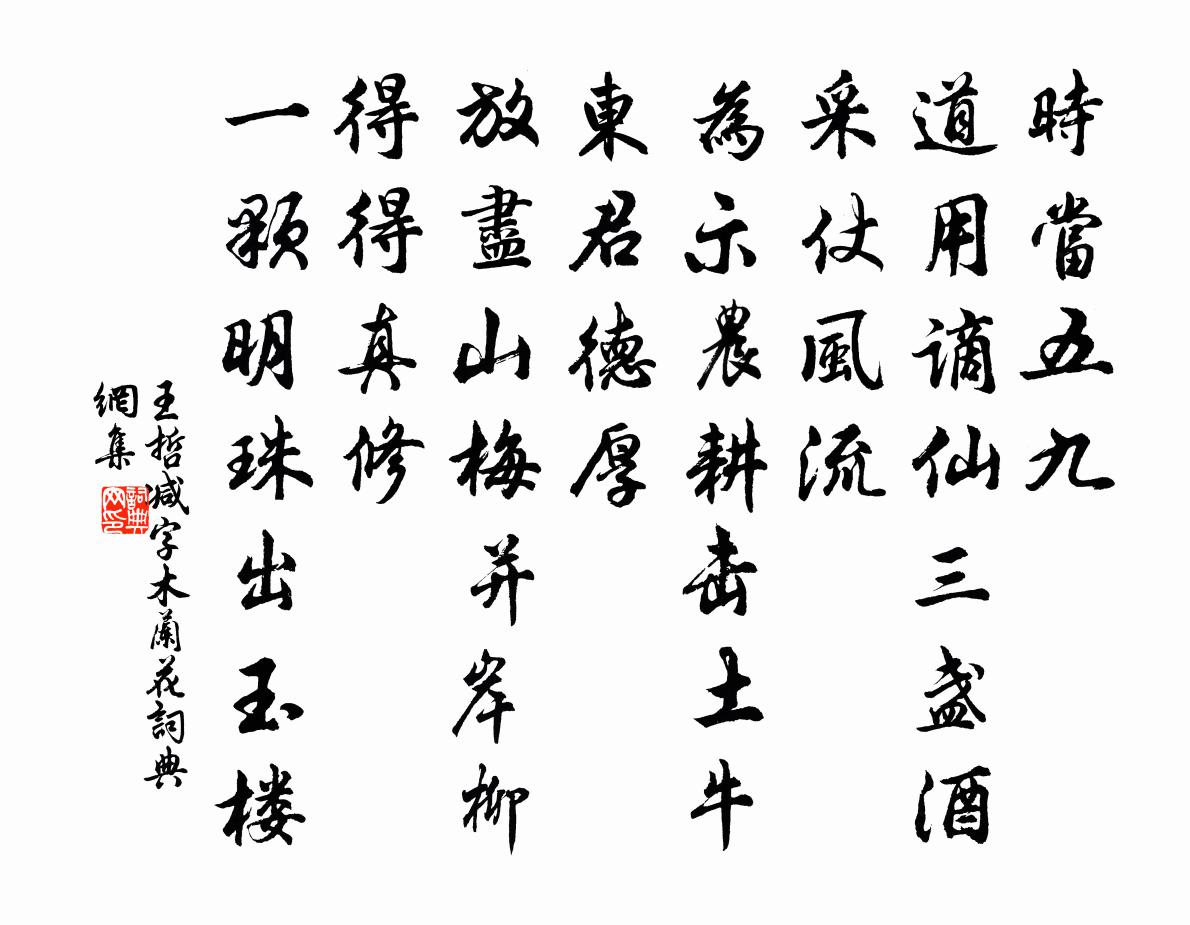 時當五九
道用謫仙三盏酒
采仗風流
為示農耕击土牛
東君德厚
放盡山梅并岸柳
得得真修
一顆明珠出玉楼
王哲减字木蘭花詞典
網集
詞典
网印